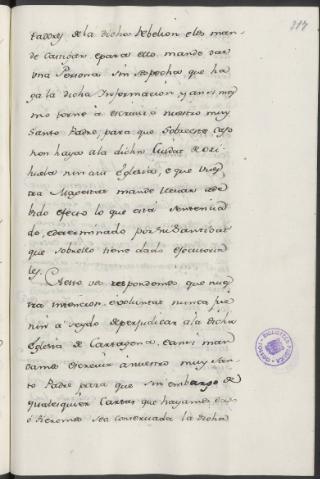 217
tadores de la dicha Rebelion, e los man-
de castigar, e para ello mande dar
una Persona sin sospecha que ha-
ga la dicha Informacion, y ansi mes
mo torne à escrevir à nuestro muy
Santo Padre, para que sobreste caso
non haya à la dicha Ciudat de Ori-
huela nin à su Eglesia, e que Vues-
tra Magestat mande llevar à de-
bido efecto lo que está sentencia-
do, e determinado por su Santidat
que sobrello tiene dado executoria
les.
A esto vos respondemos que nues-
tra intencion, e voluntat nunca fue
nin à seydo de perjudicar à la dicha
Eglesia de Cartagena, e ansi man-
damos escrevir à nuestro muy San-
to Padre para que sin embargo de
qualesquier Cartas que hayamos dado
ò dieremos sea conservada la dicha
BIBLIOTECA